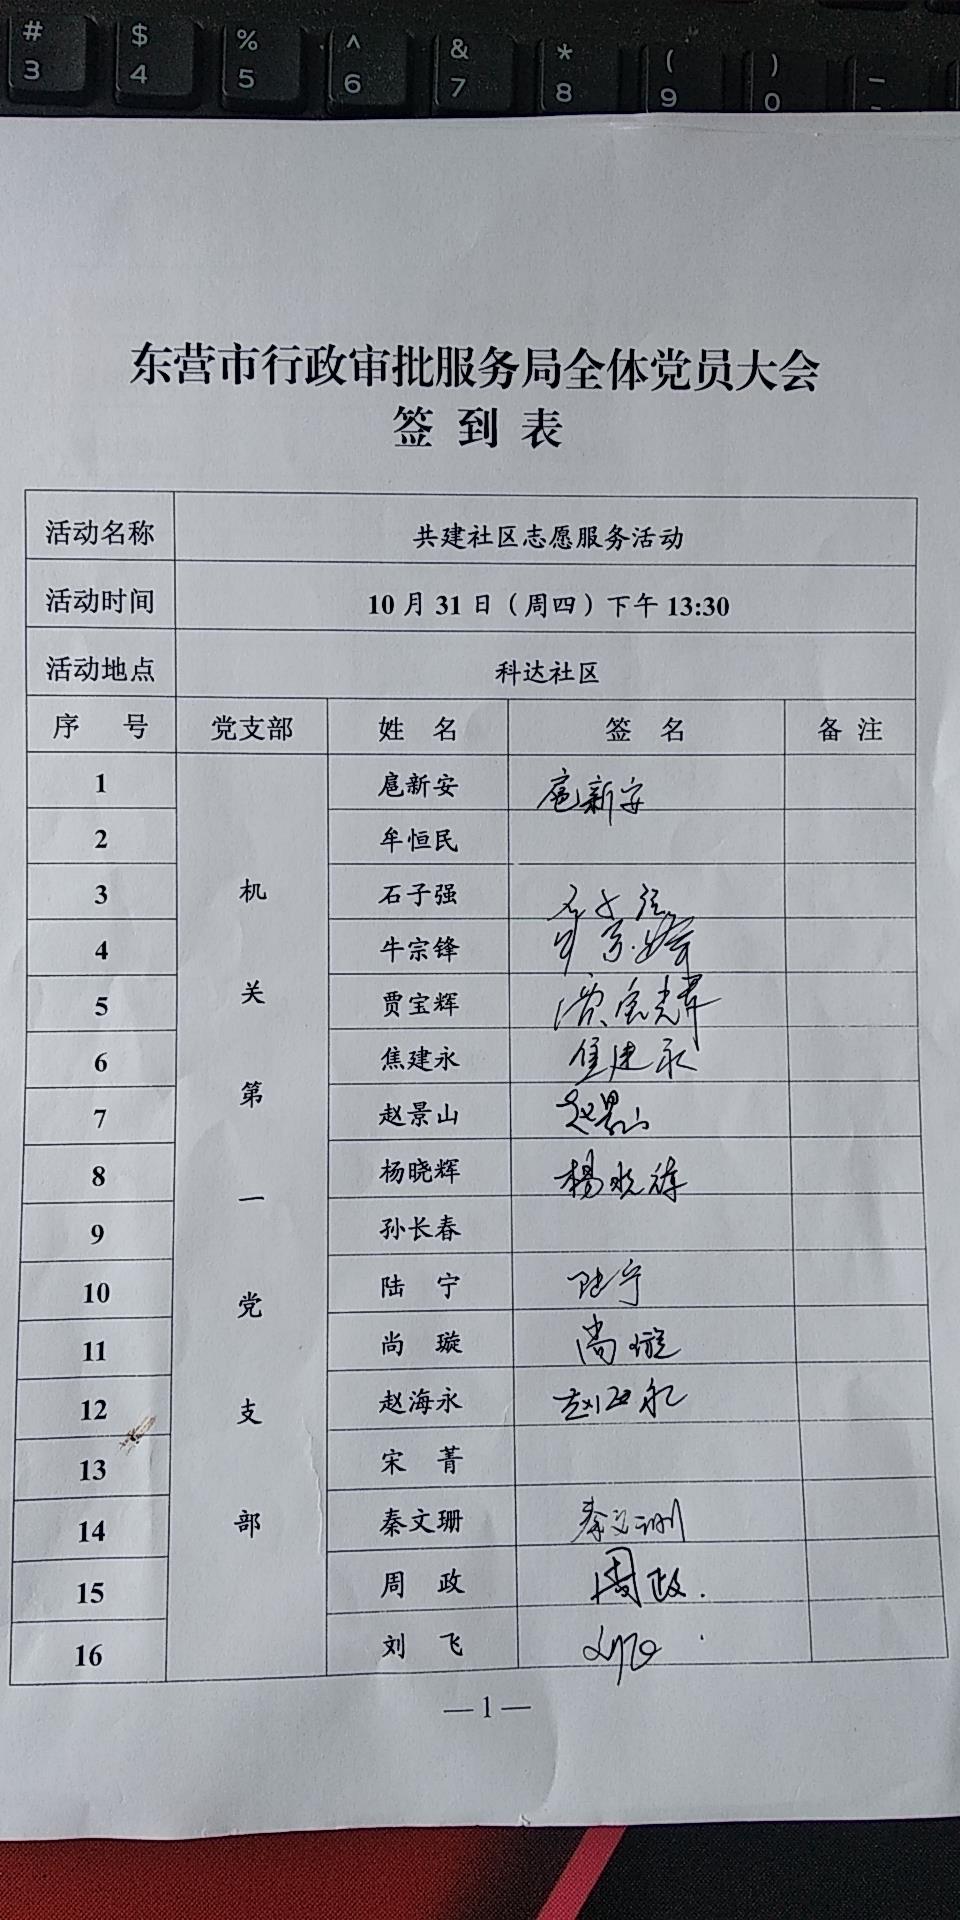 # $ % ^ & * ( ) _
3 4 5 6 7 8 9 0 -
东营市行政审批服务局全体党员大会
签 到 表
活动名称 共建社区志愿服务活动
活动时间 10 月 31 日（周四）下午 13:30
活动地点 科达社区
序 号 党支部 姓 名 签 名 备 注
机关第一党支部
1 扈新安 扈新安
2 牟恒民
3 石子强 石子强
4 牛宗锋 牛宗锋
5 贾宝辉 贾宝辉
6 焦建永 焦建永
7 赵景山 赵景山
8 杨晓辉 杨晓辉
9 孙长春
10 陆 宁 陆宁
11 尚 璇 尚璇
12 赵海永 赵海永
13 宋 菁
14 秦文珊 秦文珊
15 周 政 周政.
16 刘 飞 刘飞
— 1 —